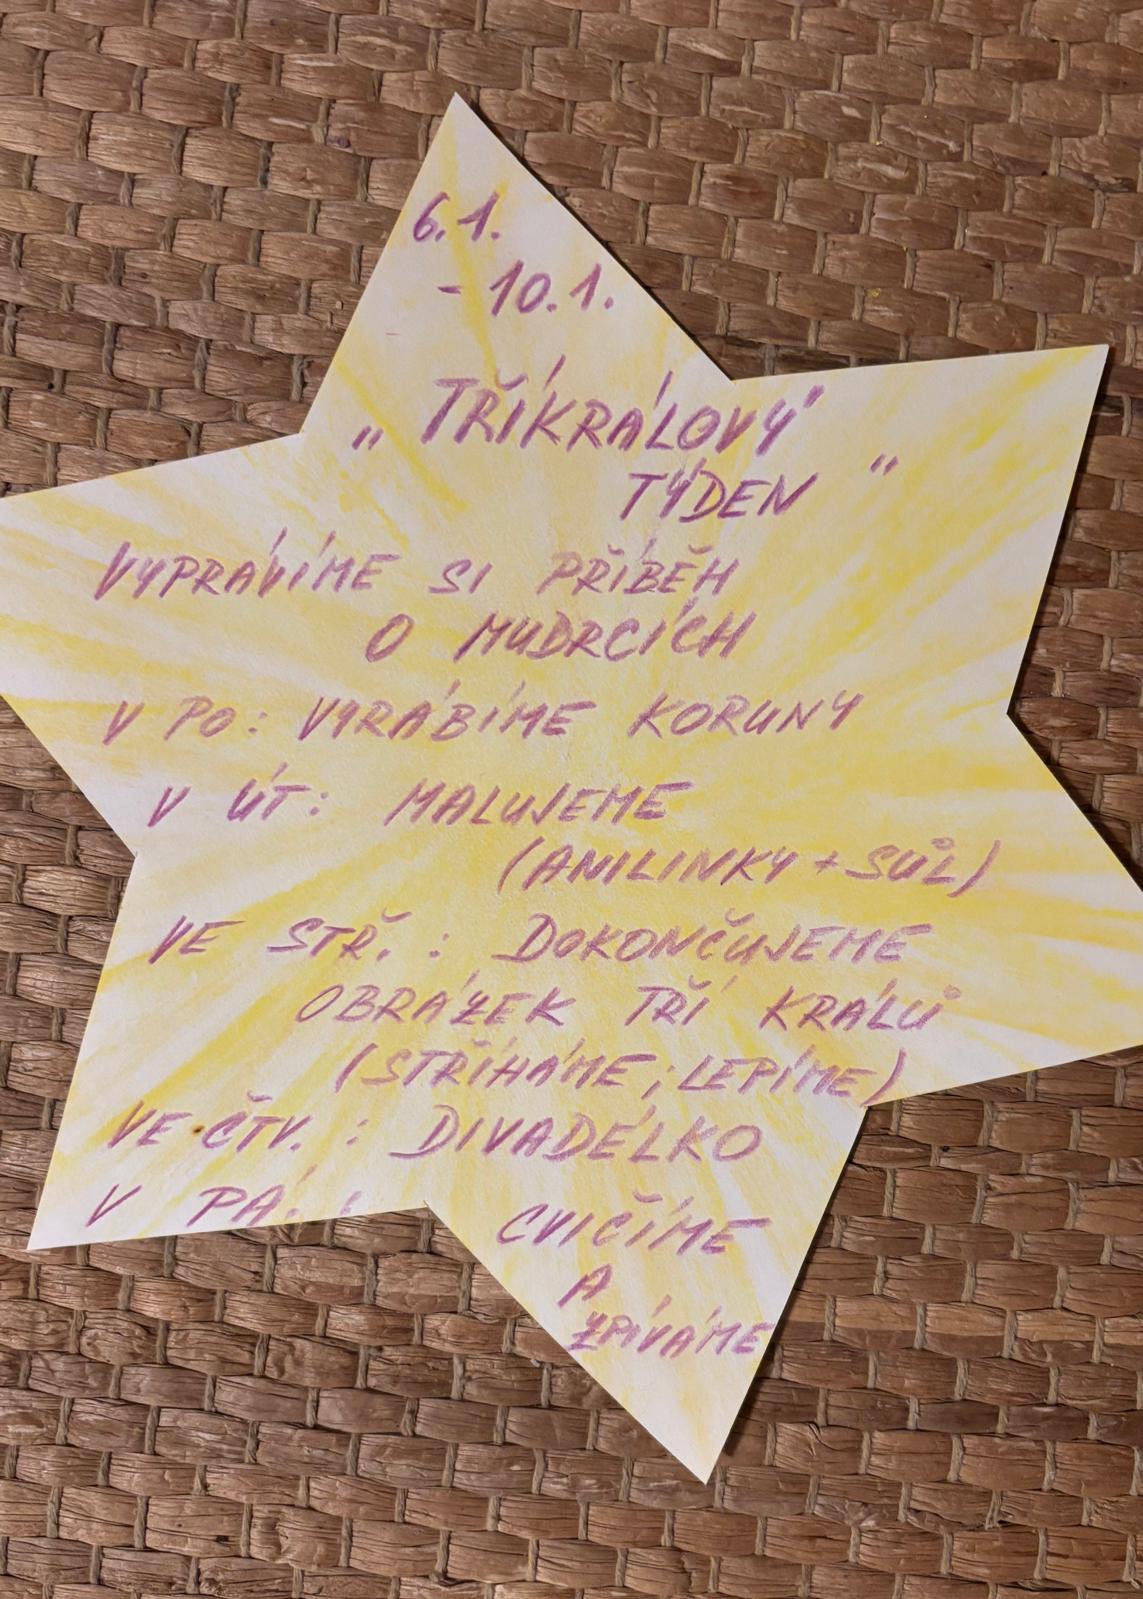 6.1.
- 10.1.
„ TŘÍKRÁLOVÝ
TÝDEN "
VYPRÁVÍME SI PŘÍBĚH
O MUDRCÍCH
V PO: VYRÁBÍME KORUNY
V ÚT: MALUJEME
(ANILINKY + SŮL)
VE STŘ. : DOKONČUJEME
OBRÁZEK TŘÍ KRÁLŮ
(STŘÍHÁME; LEPÍME)
VE ČTV. : DIVADÉLKO
V PÁ. : CVIČÍME
A
ZPÍVÁME